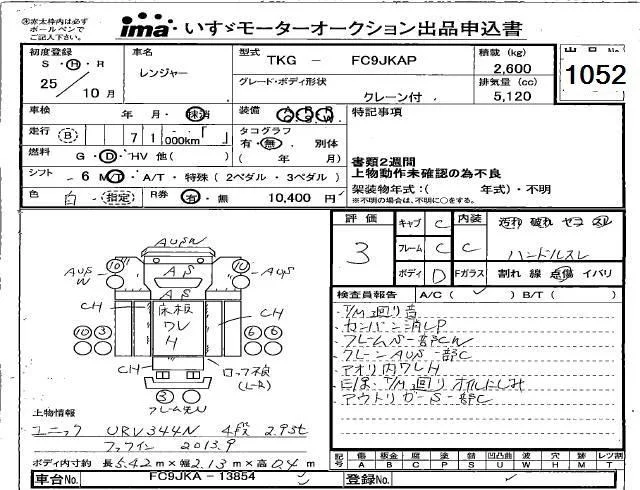 ※赤太枠内は必ず
ボールペンで
ご記入下さい。
ima いすゞモーターオークション出品申込書
初度登録
S・H・R
25 / 10 月
車名
レンジャー
型式
TKG － FC9JKAP
グレード・ボディ形状
クレーン付
積載 (kg)
2,600
排気量 (cc)
5,120
出品No
1052
車検 年 月・抹消
装備 A/C P/S P/W
特記事項
走行 B 71 000km
タコグラフ
有・無 別体
( 年 月)
燃料 G・D・HV 他( )
シフト 6 MT・A/T・特殊 (2ペダル・3ペダル)
色 白 指定
R券 有・無 10,400 円
書類2週間
上物動作未確認の為不良
架装物年式：( 年式)・不明
※不明の場合は、不明に○をする。
評価
3
キャブ C
フレーム C
ボディ D
内装 C
Fガラス
汚れ 破れ ヤコゲ スレ
ハンドルスレ
割れ 線 点傷 イバリ
検査員報告 A/C ( ✓ ) B/T ( )
・T/M廻り音
・カンバン消しP
・フレームS一部CW
・クレーンAUS一部C
・アオリ内ワレH
・E/は、T/M廻りオイルにじみ
・アウトリガーS一部C
AUSW
AUS
W
10
AS
10
AUS
AS
CH
床板
ワレ
H
CH
10 3
6 6
CH
ロック不良
(L-R)
3
フレームモレ
上物情報
ユニック URV344N 4段 2.93t
ファイン 2013.9
ボディ内寸約 長5.42m×幅2.13m×高0.4m
記号 傷 板金 腐 塗 錆 凹凸凹 波 穴 跡 レツ割
A B C P S U W H M T
車台No. FC9JKA － 13854
登録No.